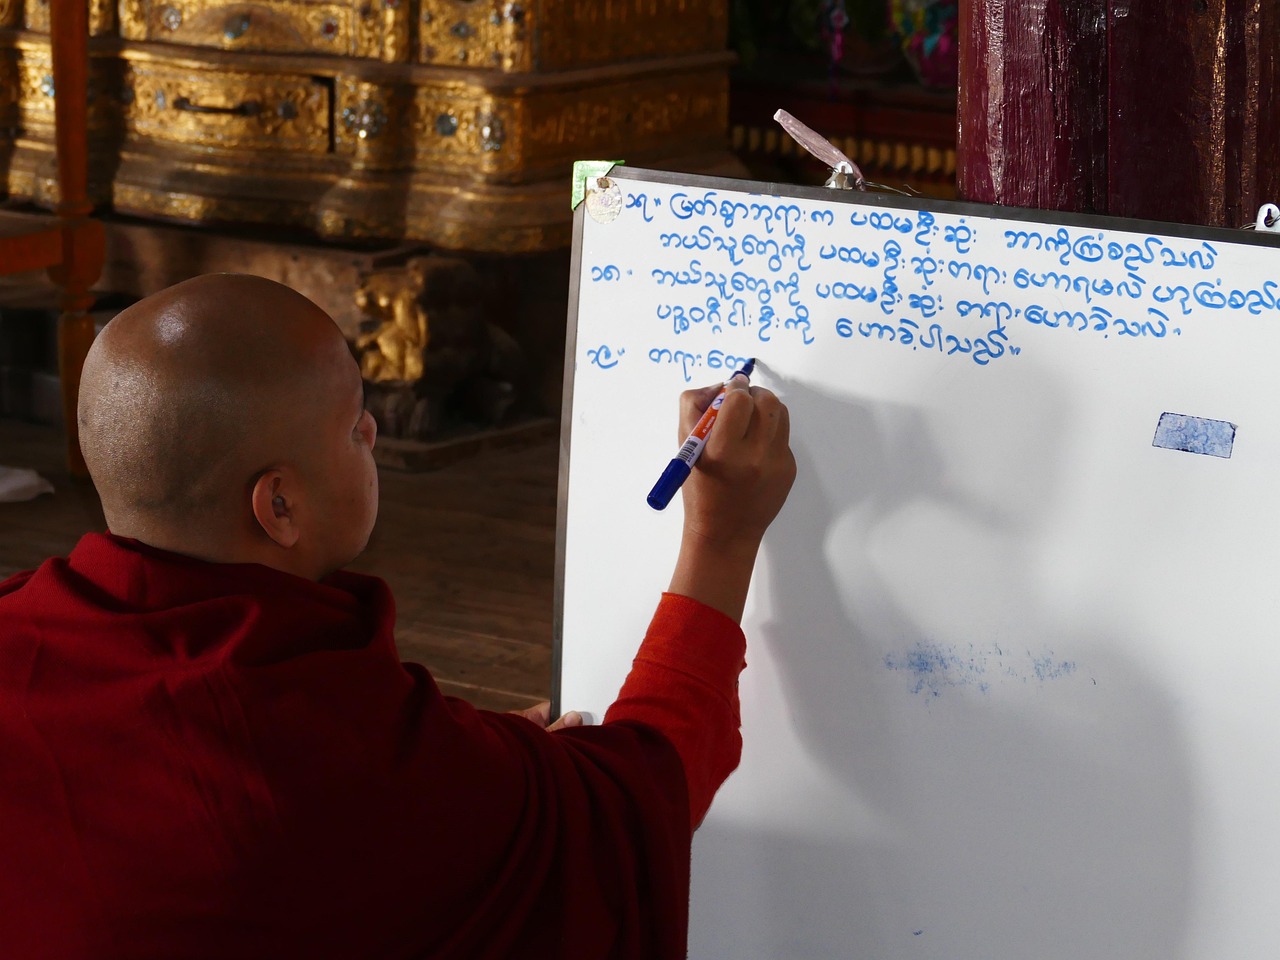 ၁၇။ မြတ်စွာဘုရားက ပထမဦးဆုံး ဘာကိုကြံစည်သလဲ
ဘယ်သူတွေကို ပထမဦးဆုံးတရားဟောရမလဲ ဟုကြံစည်
၁၈။ ဘယ်သူတွေကို ပထမဦးဆုံး တရားဟောခဲ့သလဲ။
ပဉ္စဝဂ္ဂီငါးဦးကို ဟောခဲ့ပါသည်။
၁၉။ တရားတော